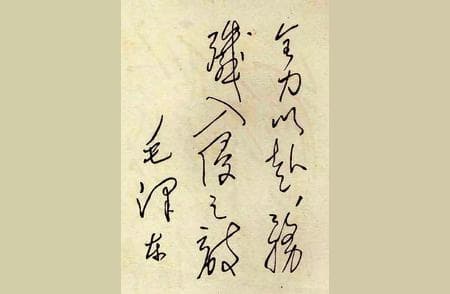 全力以赴、務
殲入侵之敵
毛泽东